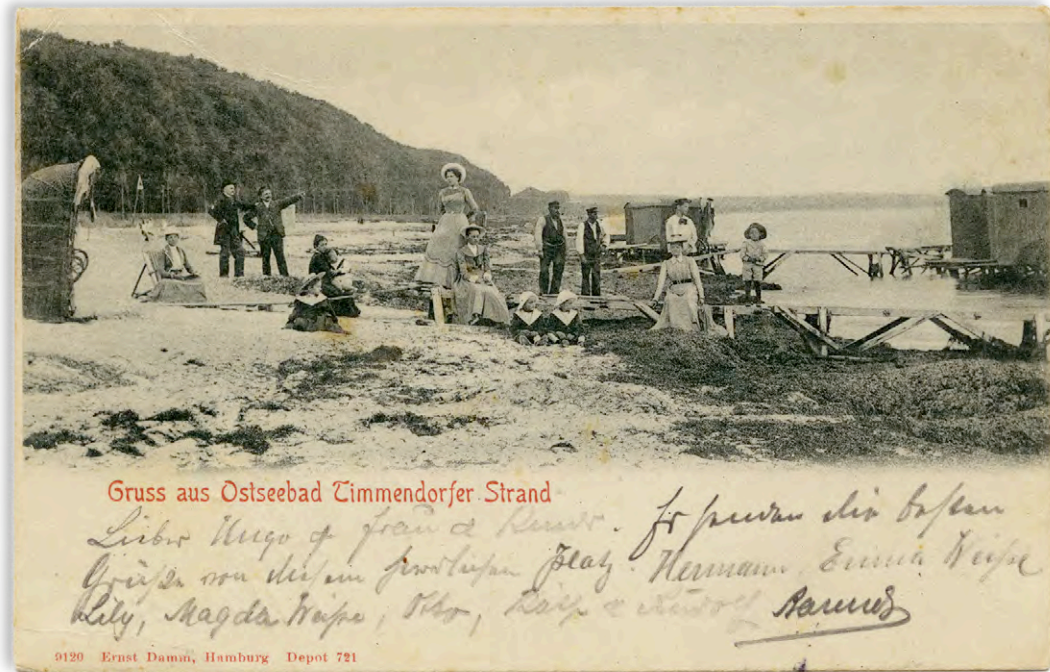 Gruss aus Ostseebad Timmendorfer Strand
Lieber Hugo & Frau & Kinder. Es senden die besten
Grüße von diesem herrlichen Platz. Hermann, Emma Weiße
Lily, Magda Weiße, Otto, & Rudolf
9120 Ernst Damm, Hamburg Depot 721